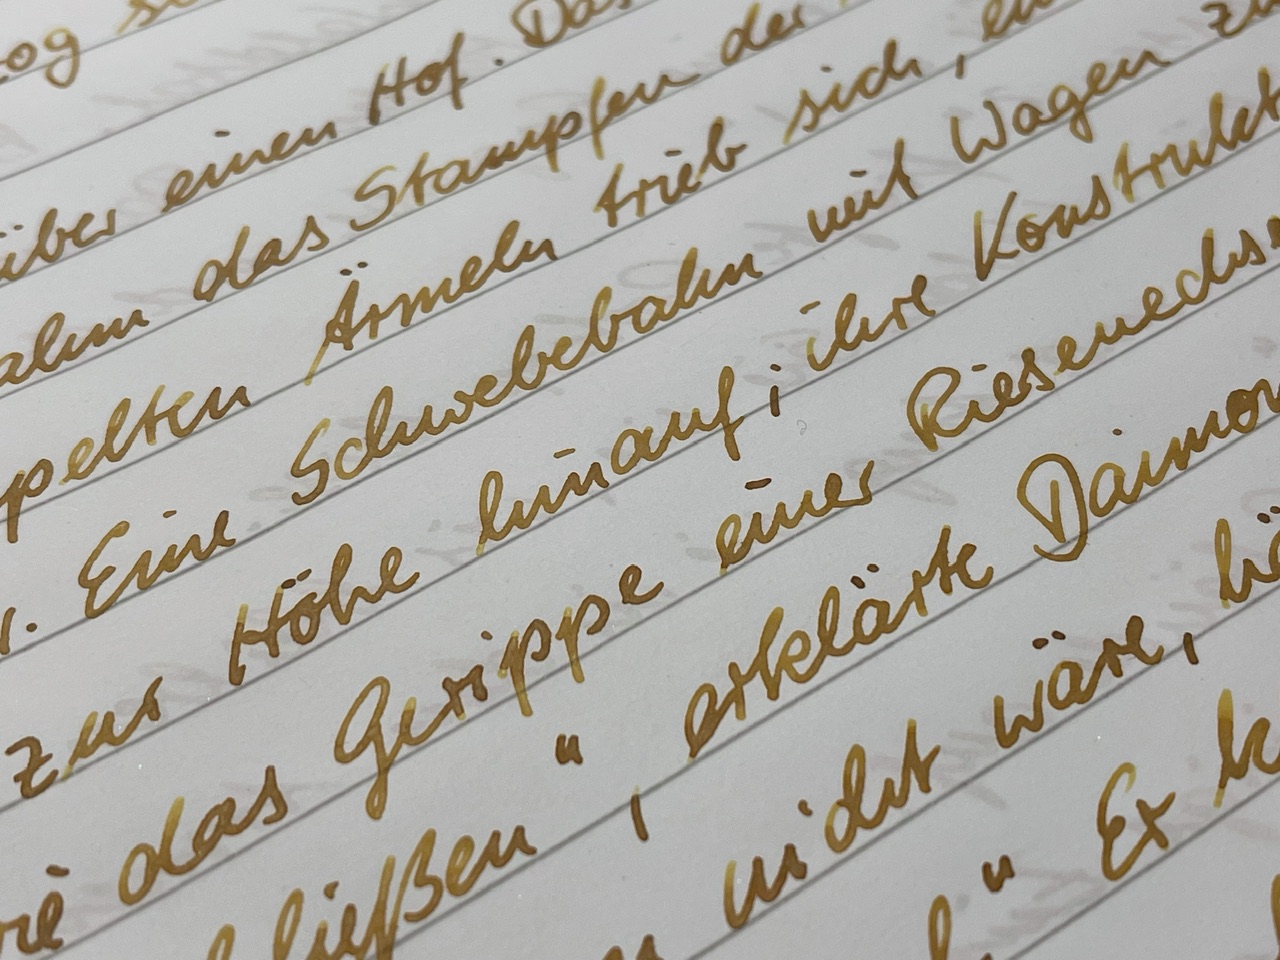 über einen Hof. Das
das Stampfen der
pelten Ärmeln trieb sich,
Eine Schwebebahn mit Wagen
zur Höhe hinauf; ihre Konstrukt
das Gerippe einer Riesenechs
ließen", erklärte Daimon
nicht wäre,
" Er